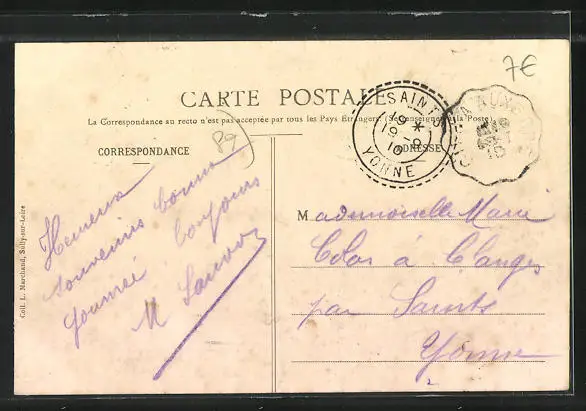 7€
CARTE POSTALE
La Correspondance au recto n'est pas acceptée par tous les Pays Etrangers (Se renseigner à la Poste)
89
CORRESPONDANCE
ADRESSE
SAINTS
19 - 9
10
YONNE
AUX
Heureux
souvenirs bonne
journée bonjours
M
Mademoiselle Marie
Colas à
par Saints
Yonne
Coll. L. Marchand, Sully-sur-Loire